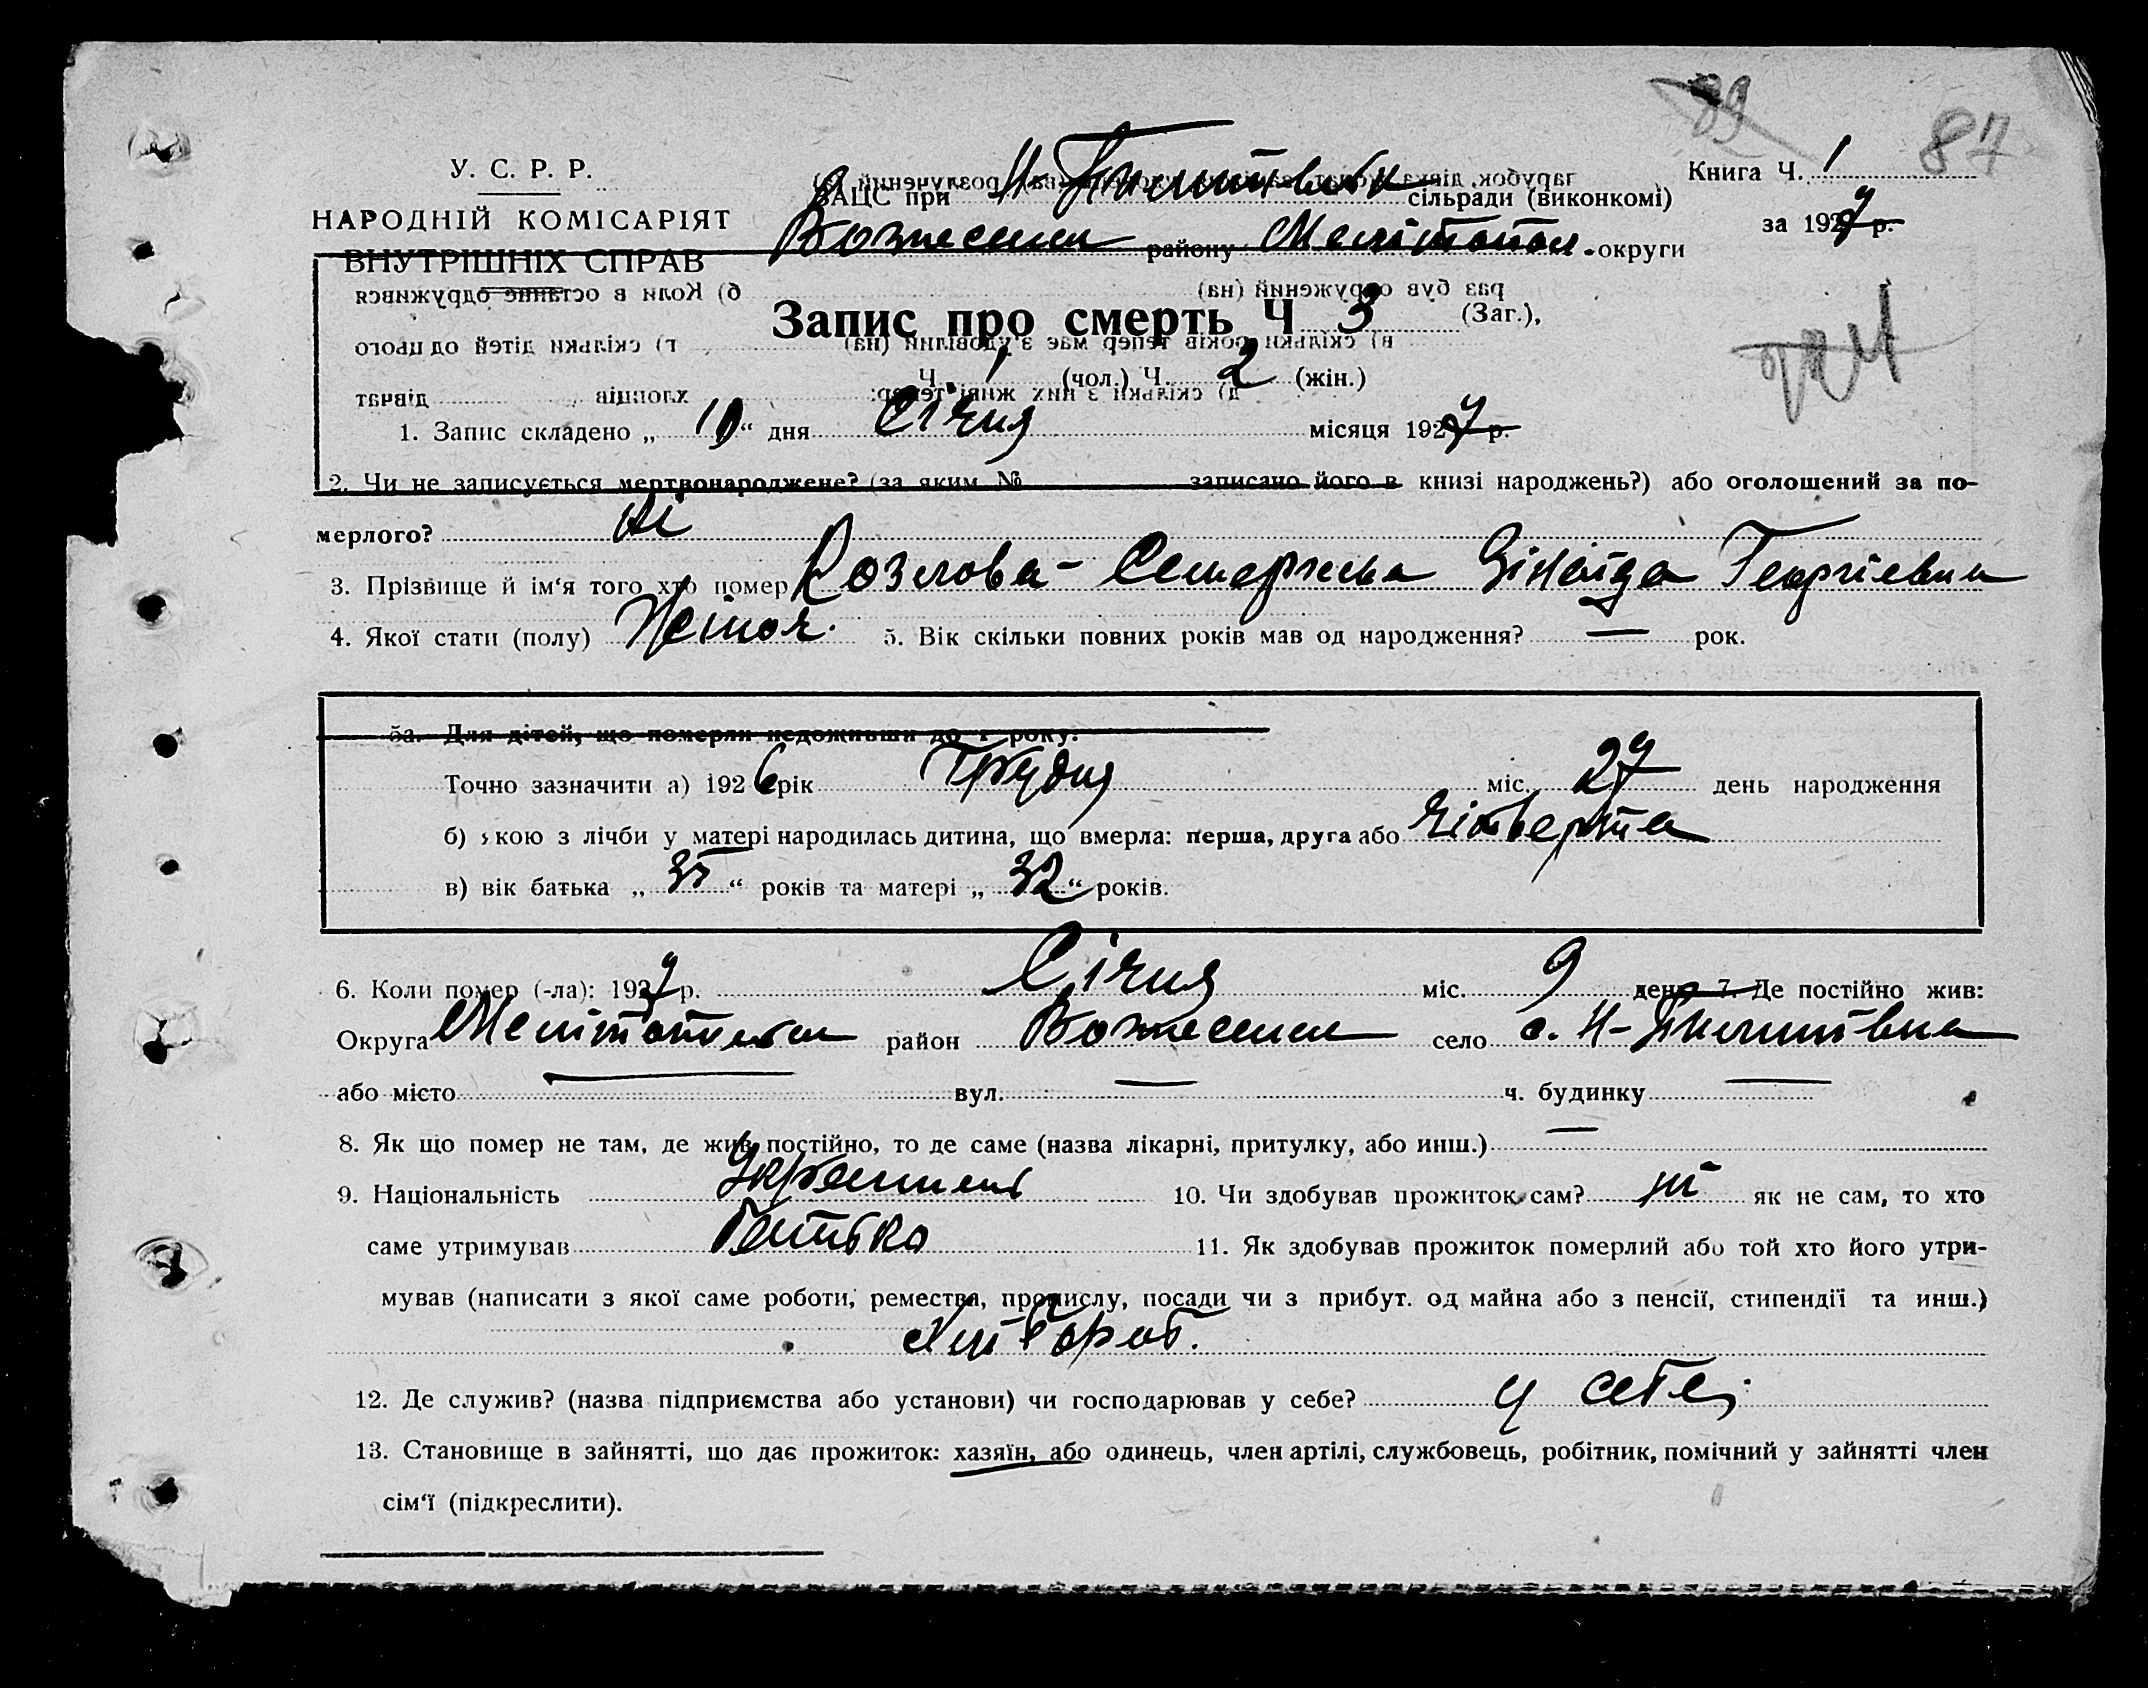 89 87
У. С. Р. Р.
НАРОДНІЙ КОМІСАРІЯТ
ВНУТРІШНІХ СПРАВ
ЗАЦС при Н- сільради (виконкомі)
Вознесенск району Мелітопол. округи
Книга Ч. 1
за 1927 р.
Запис про смерть Ч 3 (Заг.),
Ч. 1 (чол.) Ч. 2 (жін.)
1. Запис складено „ 10 “ дня Січня місяця 1927 р.
2. Чи не записується мертвонароджене? (за яким № записано його в книзі народжень?) або оголошений за по-
мерлого? Ні
3. Прізвище й ім‘я того хто помер Козлова- Зінаїда Георгієвна
4. Якої стати (полу) Жіноч. 5. Вік скільки повних років мав од народження? — рок.
5а. Для дітей, що померли недоживши до 1 року:
Точно зазначити а) 1926 рік Грудня міс. 27 день народження
б) якою з лічби у матері народилась дитина, що вмерла: перша, друга або чітверта
в) вік батька „ 35 “ років та матері „ 32 “ років.
6. Коли помер (-ла): 1927 р. Січня міс. 9 день 7. Де постійно жив:
Округа район село с. Н-
або місто — вул. — ч. будинку —
8. Як що помер не там, де жив постійно, то де саме (назва лікарні, притулку, або инш.) —
9. Національність 10. Чи здобував прожиток сам? ні як не сам, то хто
саме утримував Батько 11. Як здобував прожиток померлий або той хто його утри-
мував (написати з якої саме роботи, ремества, промислу, посади чи з прибут. од майна або з пенсії, стипендії та инш.)
Хлібороб.
12. Де служив? (назва підприємства або установи) чи господарював у себе? у себе
13. Становище в зайнятті, що дає прожиток: хазяїн, або одинець, член артілі, службовець, робітник, помічний у зайнятті член
сім‘ї (підкреслити).